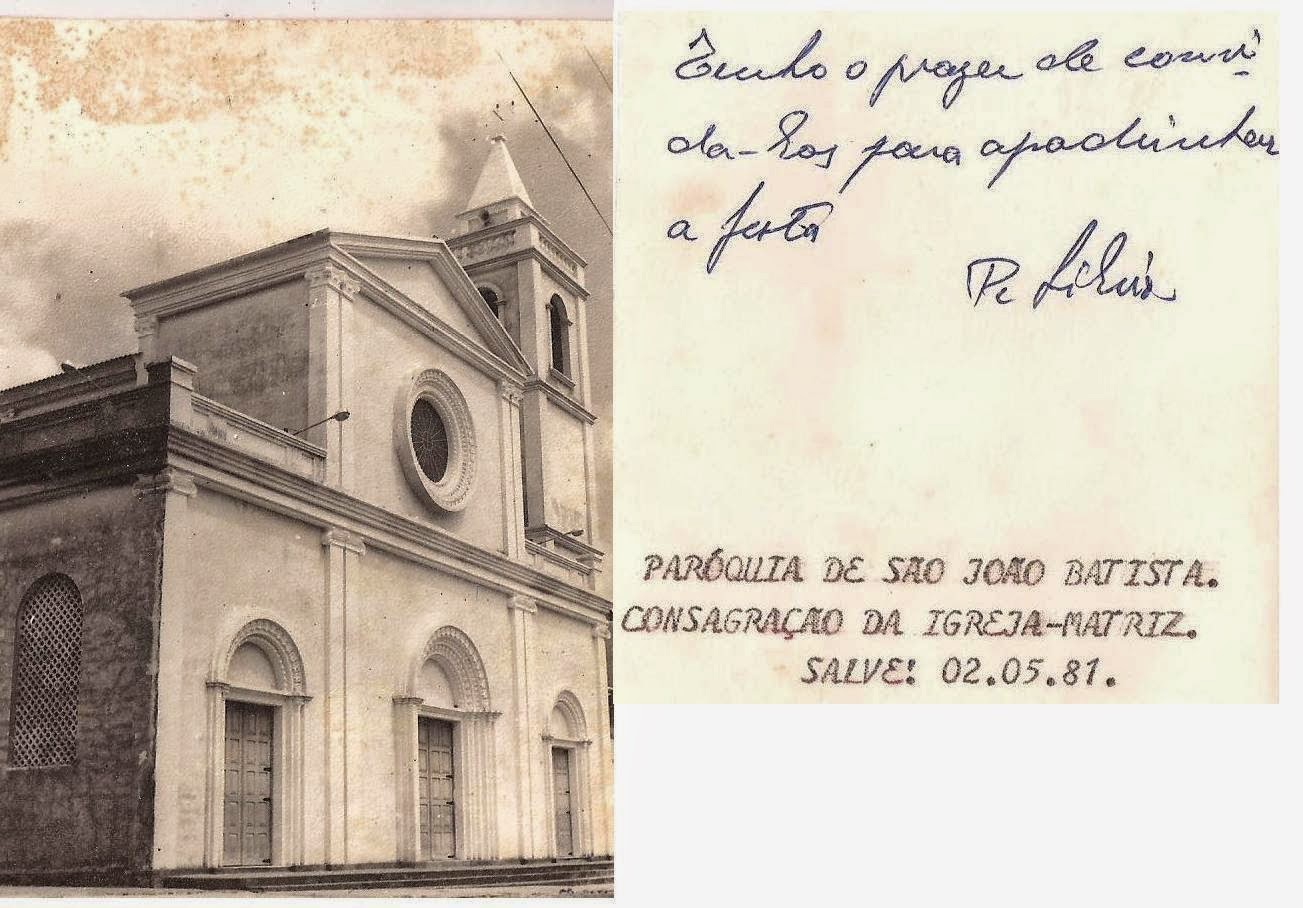 Tenho o prazer de convi-
da-los para apadrinhar
a festa
Pe
PARÓQUIA DE SÃO JOÃO BATISTA.
CONSAGRAÇÃO DA IGREJA-MATRIZ.
SALVE! 02.05.81.